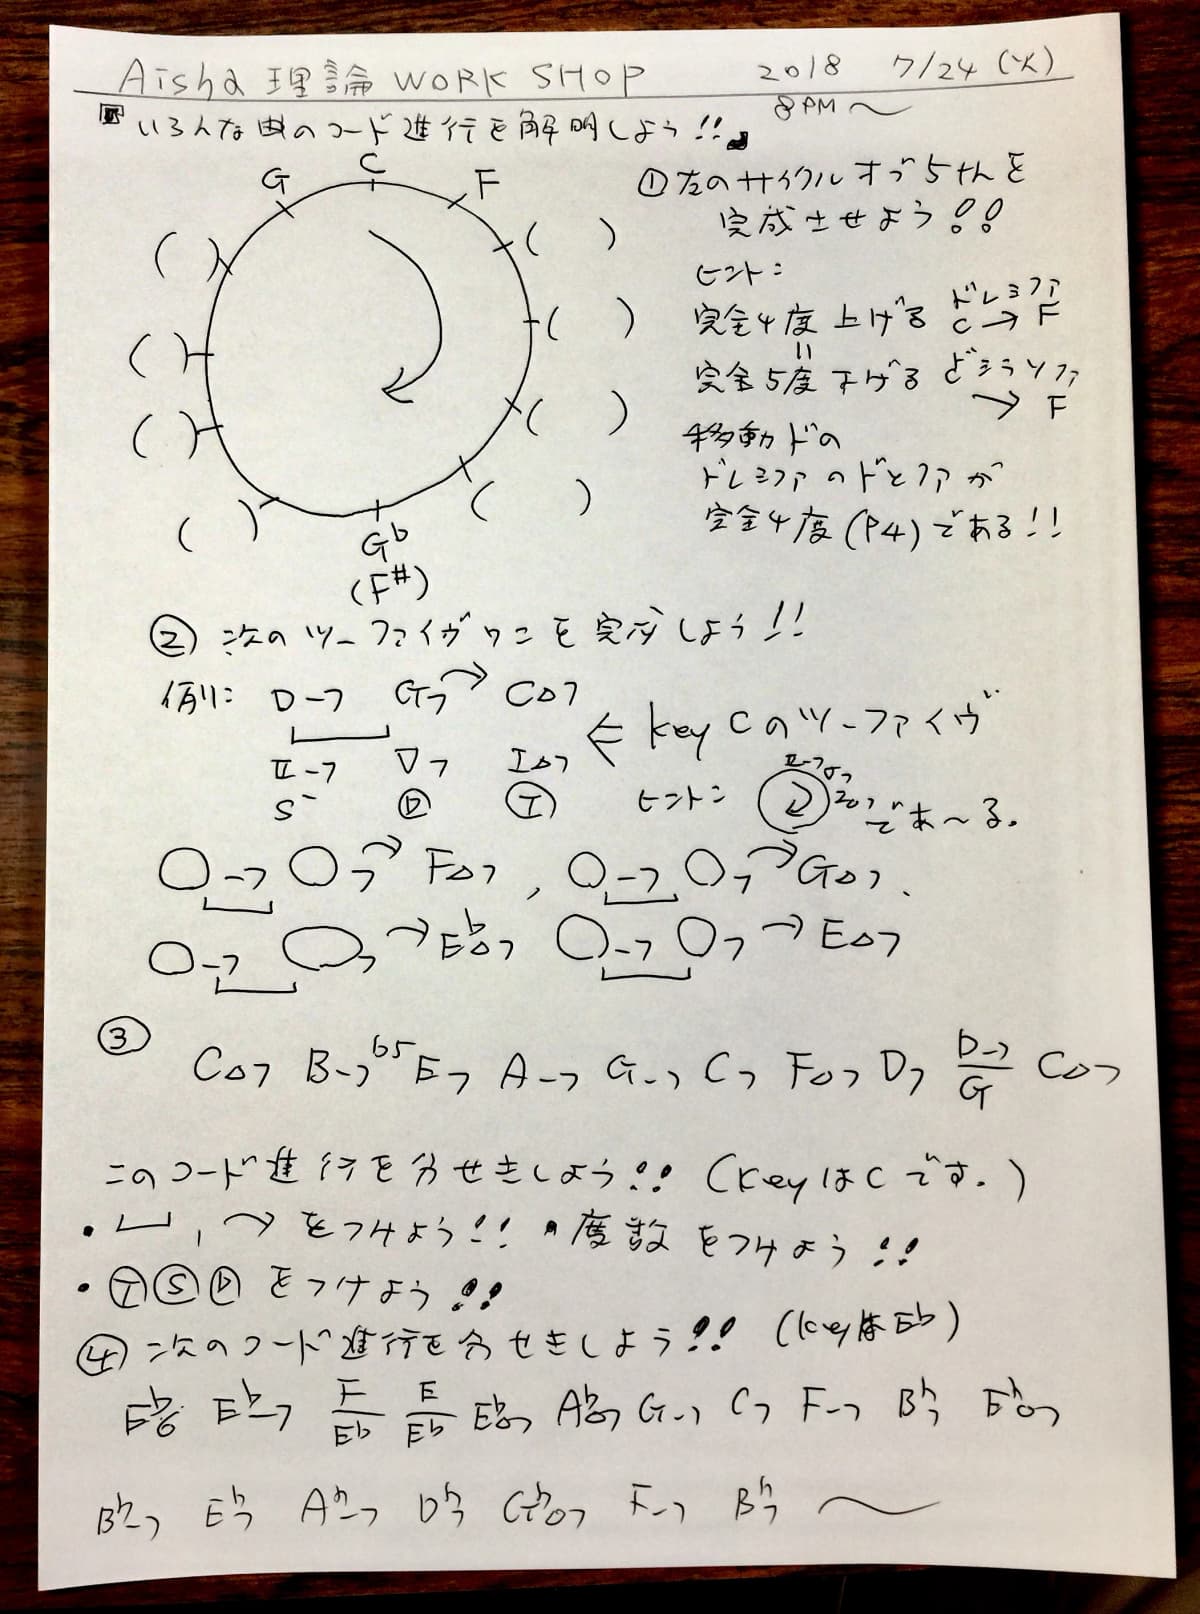 Aisha 理論 WORK SHOP 2018 7/24 (火)
8PM〜
『いろんな曲のコード進行を解明しよう!!』
C
G F
( ) ( )
( ) ( )
( ) ( )
( ) ( )
G♭
(F#)
①左のサイクルオブ5thを
完成させよう!!
ヒント:
完全4度上げる ドレミファ C→F
||
完全5度下げる どシラソファ →F
移動ドの
ドレミファのドとファが
完全4度(P4)である!!
② 次のツーファイヴワンを完成しよう!!
例: D-7 G7 C△7
II-7 V7 I△7 ← Key Cのツーファイヴ
S- Ⓓ Ⓣ ヒント: II-7 V7 I△7 であ〜る.
○-7 ○7 F△7 , ○-7 ○7 G△7 .
○-7 ○7 → E♭△7 ○-7 ○7 → E△7
③
C△7 B-7♭5 E7 A-7 G-7 C7 F△7 D7 D-7/G C△7
このコード進行を分せきしよう!! (KeyはCです.)
・⎵ , ⌒ をつけよう!! ・度数をつけよう!!
・ⓉⓈⒹ をつけよう!!
④ 次のコード進行を分せきしよう!! (KeyはE♭)
E♭6 E♭-7 F/E♭ E/E♭ E♭△7 A♭△7 G-7 C7 F-7 B♭7 E♭△7
B♭-7 E♭7 A♭-7 D♭7 G♭△7 F-7 B♭7 〜